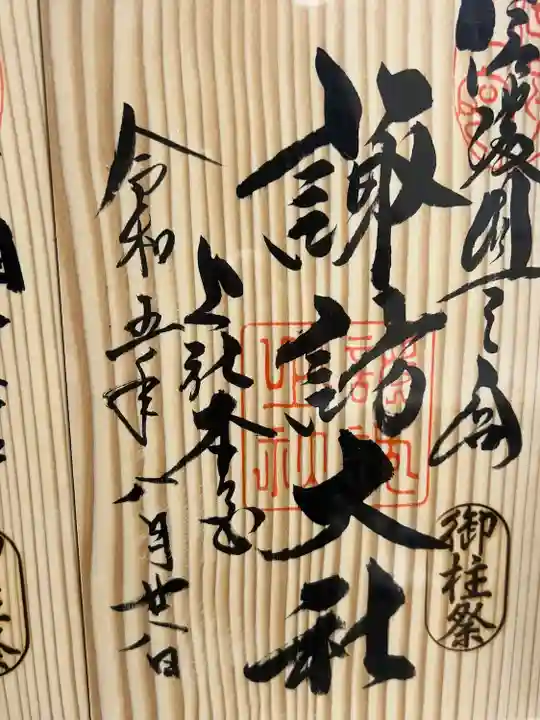 信濃國一之宮
御柱祭
諏訪大社
上社本宮
令和五年八月廿八日